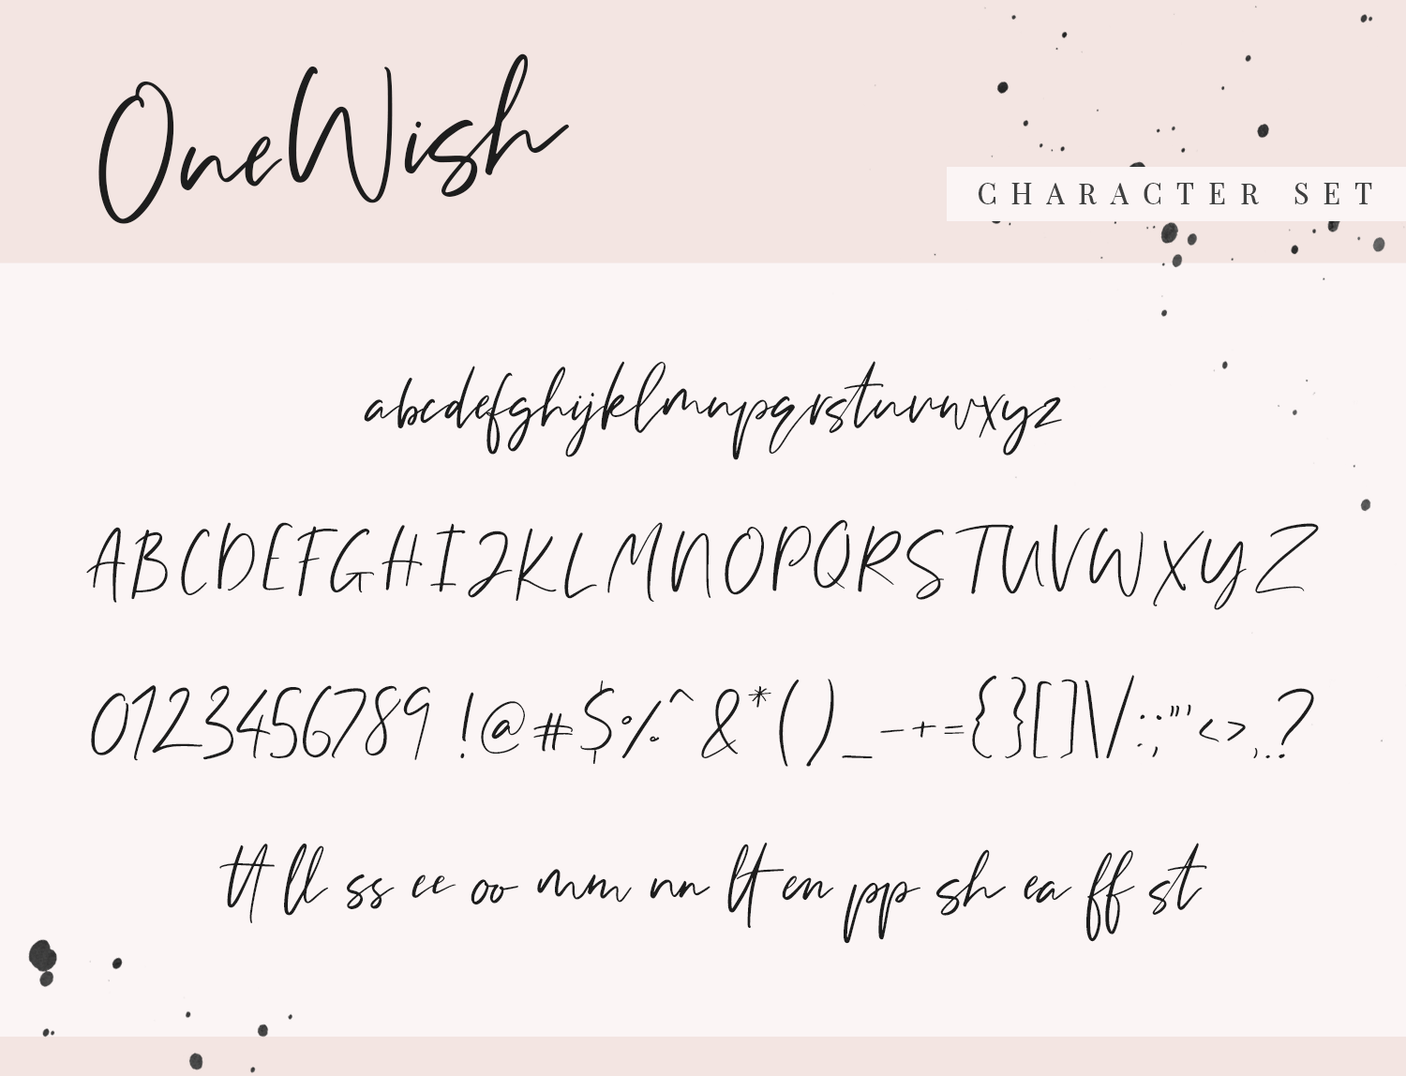 OneWish
CHARACTER SET
abcdefghijklmnpqrstuvwxyz
ABCDEFGHIJKLMNOPQRSTUVWXYZ
0123456789 !@#$%^&*()_-+={}[]\/:;"'<>,.?
tt ll ss ee oo mm nn lt en pp sh ea ff st